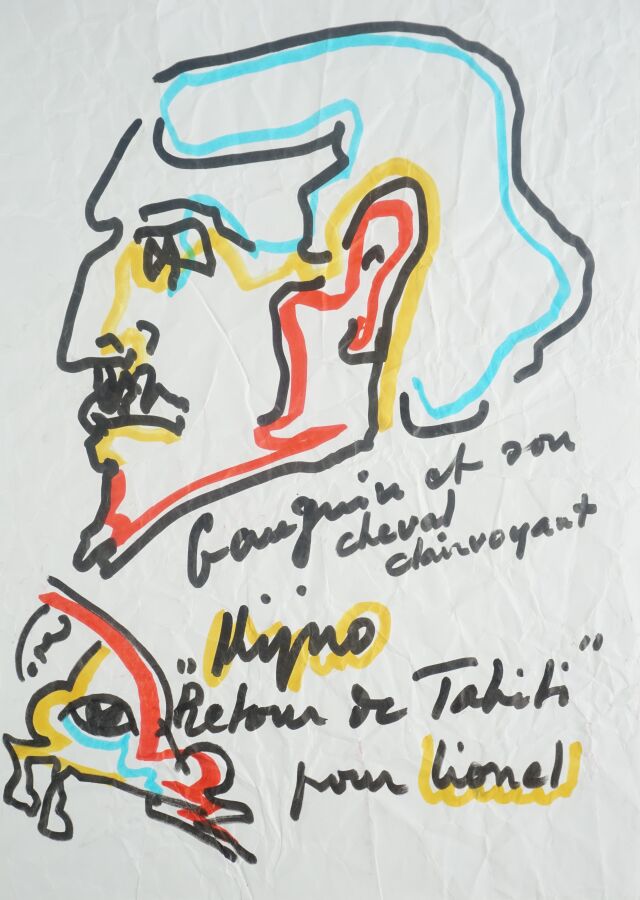 Gauguin et son
cheval
clairvoyant
Kijno
"Retour de Tahiti"
pour Lionel